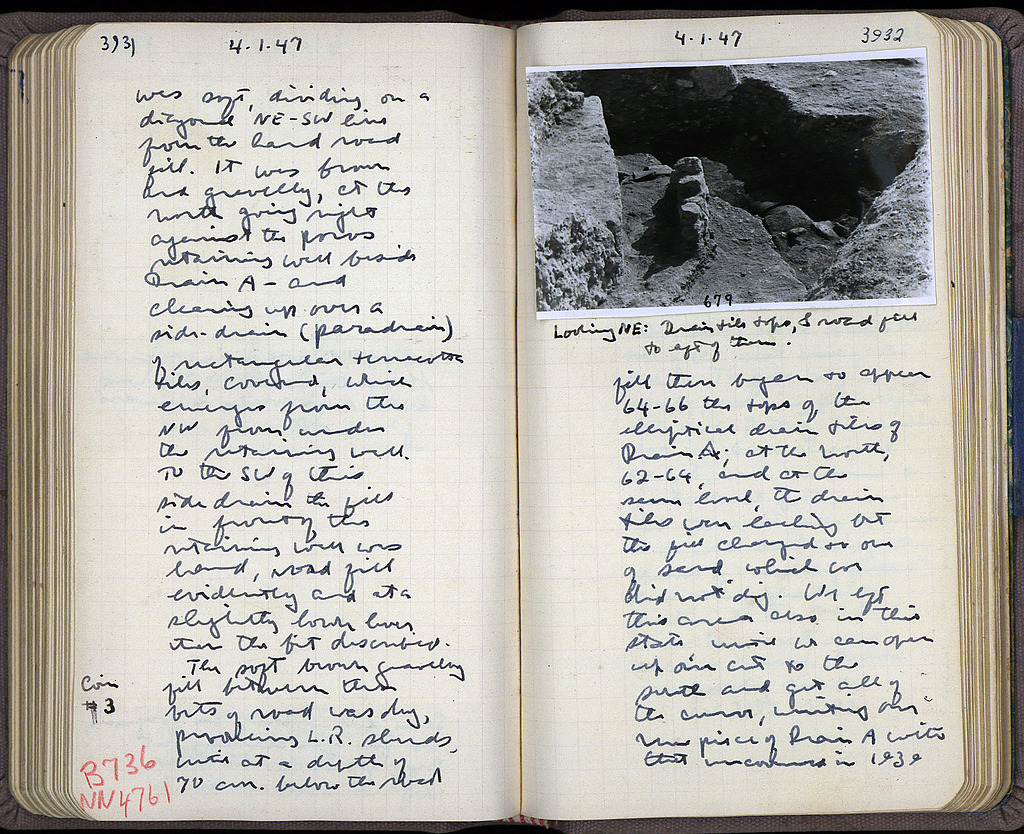 3931
4.1.47
was soft, dividing on a
diagonal NE-SW line
from the hard road
fill. It was brown
and gravelly, at the
north going right
against the poros
retaining wall beside
Drain A - and
cleaning up over a
side-drain (paradrain)
of rectangular terracotta
tiles, covered, which
emerges from the
NW from under
the retaining wall.
To the SW of this
side drain the fill
in front of the
retaining wall was
hard, road fill
evidently and at a
slightly lower level
than the bit described.
The soft brown gravelly
fill between these
bits of road was dug,
producing L.R. sherds,
until at a depth of
70 cm. below the road
Coin
#3
B736
NN4761
4.1.47
3932
679
Looking NE: Drain tile tops, & road fill
to left of them.
fill then began to appear
64-66 the tops of the
elliptical drain tiles of
Drain A; at the north,
62-64, and at the
same level, the drain
tiles were lacking but
the fill changed to one
of sand which we
did not dig. We left
this area also in this
state until we can open
up our cut to the
south and get all of
the curve, uniting our
new piece of Drain A with
that uncovered in 1939